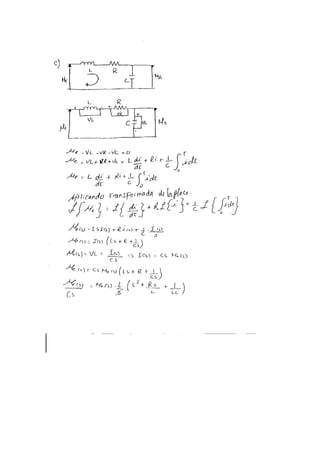 c)
L R
Me C Ms
L R
VL VR
Me C VC Ms
Me - VL - VR - VC = 0
Me = VL + VR + VC = L di/dt + Ri + 1/C ∫₀ᵀ i dt
Me = L di/dt + Ri + 1/C ∫₀ᵀ i dt
Aplicando transformada de laplace.
ℒ{Me} = ℒ{di/dt} + Rℒ{i} + 1/C ℒ[∫₀ᵀ i dt]
Me(s) = LSI(s) + RI(s) + 1/C I(s)/S
Me(s) = I(s) (LS + R + 1/CS)
Ms(s) = VC = I(s)/CS => I(s) = CS Ms(s)
Me(s) = CS Ms(s) (LS + R + 1/CS)
Me(s)/CS = Ms(s) · L/S (S² + RS/L + 1/LC)